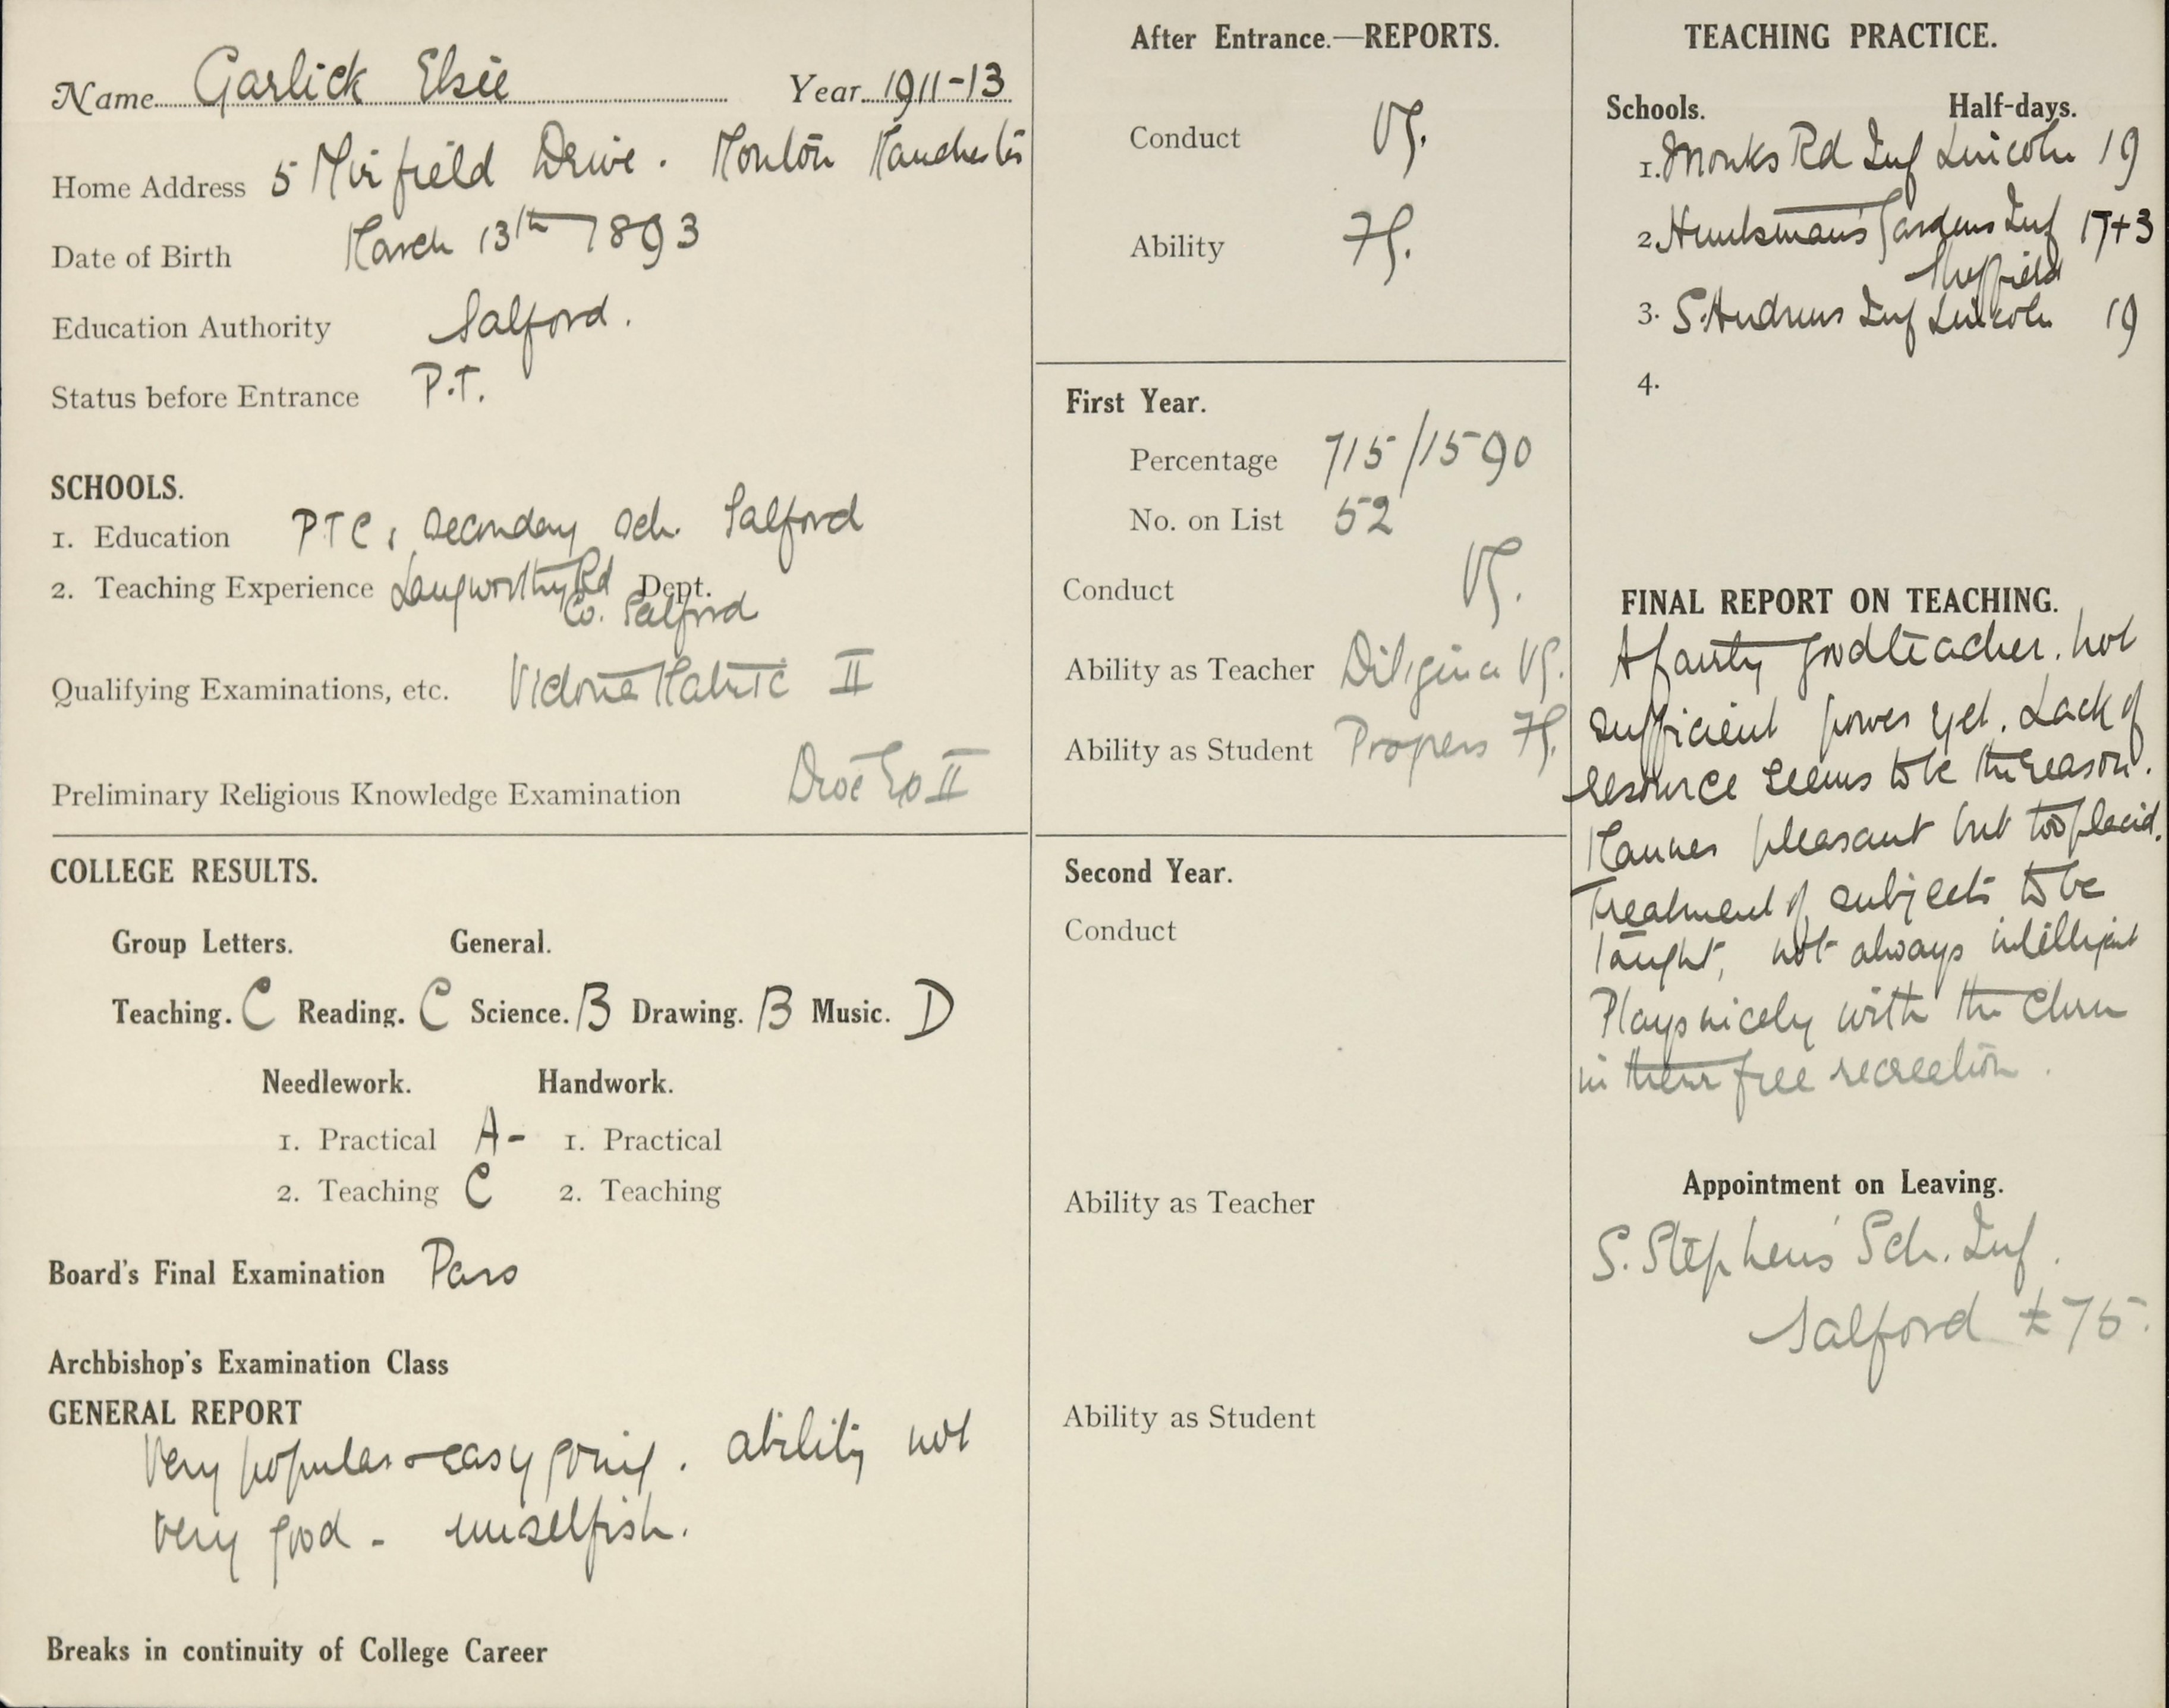 Name Garlick Elsie Year 1911-13
Home Address 5 Mirfield Drive. Monton Manchester
Date of Birth March 13th 1893
Education Authority Salford.
Status before Entrance P.T.
SCHOOLS.
1. Education P T C, Secondary Sch. Salford
2. Teaching Experience Langworthy Rd Dept.
Co. Salford
Qualifying Examinations, etc. Victoria Matric II
Preliminary Religious Knowledge Examination II
COLLEGE RESULTS.
Group Letters. General.
Teaching. C Reading. C Science. B Drawing. B Music. D
Needlework. Handwork.
1. Practical A- 1. Practical
2. Teaching C 2. Teaching
Board's Final Examination Pass
Archbishop's Examination Class
GENERAL REPORT
Very popular & easy going. ability not
very good - unselfish.
Breaks in continuity of College Career
After Entrance.—REPORTS.
Conduct VG.
Ability FG.
First Year.
Percentage 715/1590
No. on List 52
Conduct VG.
Ability as Teacher Diligence VG.
Ability as Student Progress FG.
Second Year.
Conduct
Ability as Teacher
Ability as Student
TEACHING PRACTICE.
Schools. Half-days.
1. Monks Rd Inf Lincoln 19
2. Huntsman's Gardens Inf 17+3
Sheffield
3. S. Andrews Inf Lincoln 19
4.
FINAL REPORT ON TEACHING.
A fairly good teacher. not
sufficient power yet. Lack of
resource seems to be the reason.
Manner pleasant but too placid.
Treatment of subjects to be
taught, not always intelligent
Plays nicely with the Chrn
in their free recreation.
Appointment on Leaving.
S. Stephens' Sch. Inf.
Salford £75.